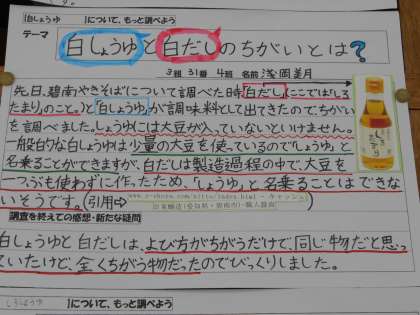 【白しょうゆ 】について、もっと調べよう
テーマ
白しょうゆと白だしのちがいとは?
3組 31番 4班 名前 浅岡美月
先日、碧南やきそばについて調べた時「白だし」(ここではしろ
たまり)のこと。)と「白しょうゆ」が調味料として出てきたので、ちがい
を調べました。しょうゆには大豆が入っていないといけません。
一般的な白しょうゆは少量の大豆を使っているので「しょうゆ」と
名乗ることができますが、白だしは製造過程の中で、大豆を
一つぶも使わずに作ったため、「しょうゆ」と名乗ることはできな
いそうです。(引用⇒
調査を終えての感想・新たな疑問
白しょうゆと白だしは、よび方がちがうだけで、同じ物だと思っ
ていたけど、全くちがう物だったのでびっくりしました。
】について、もっと調べよう